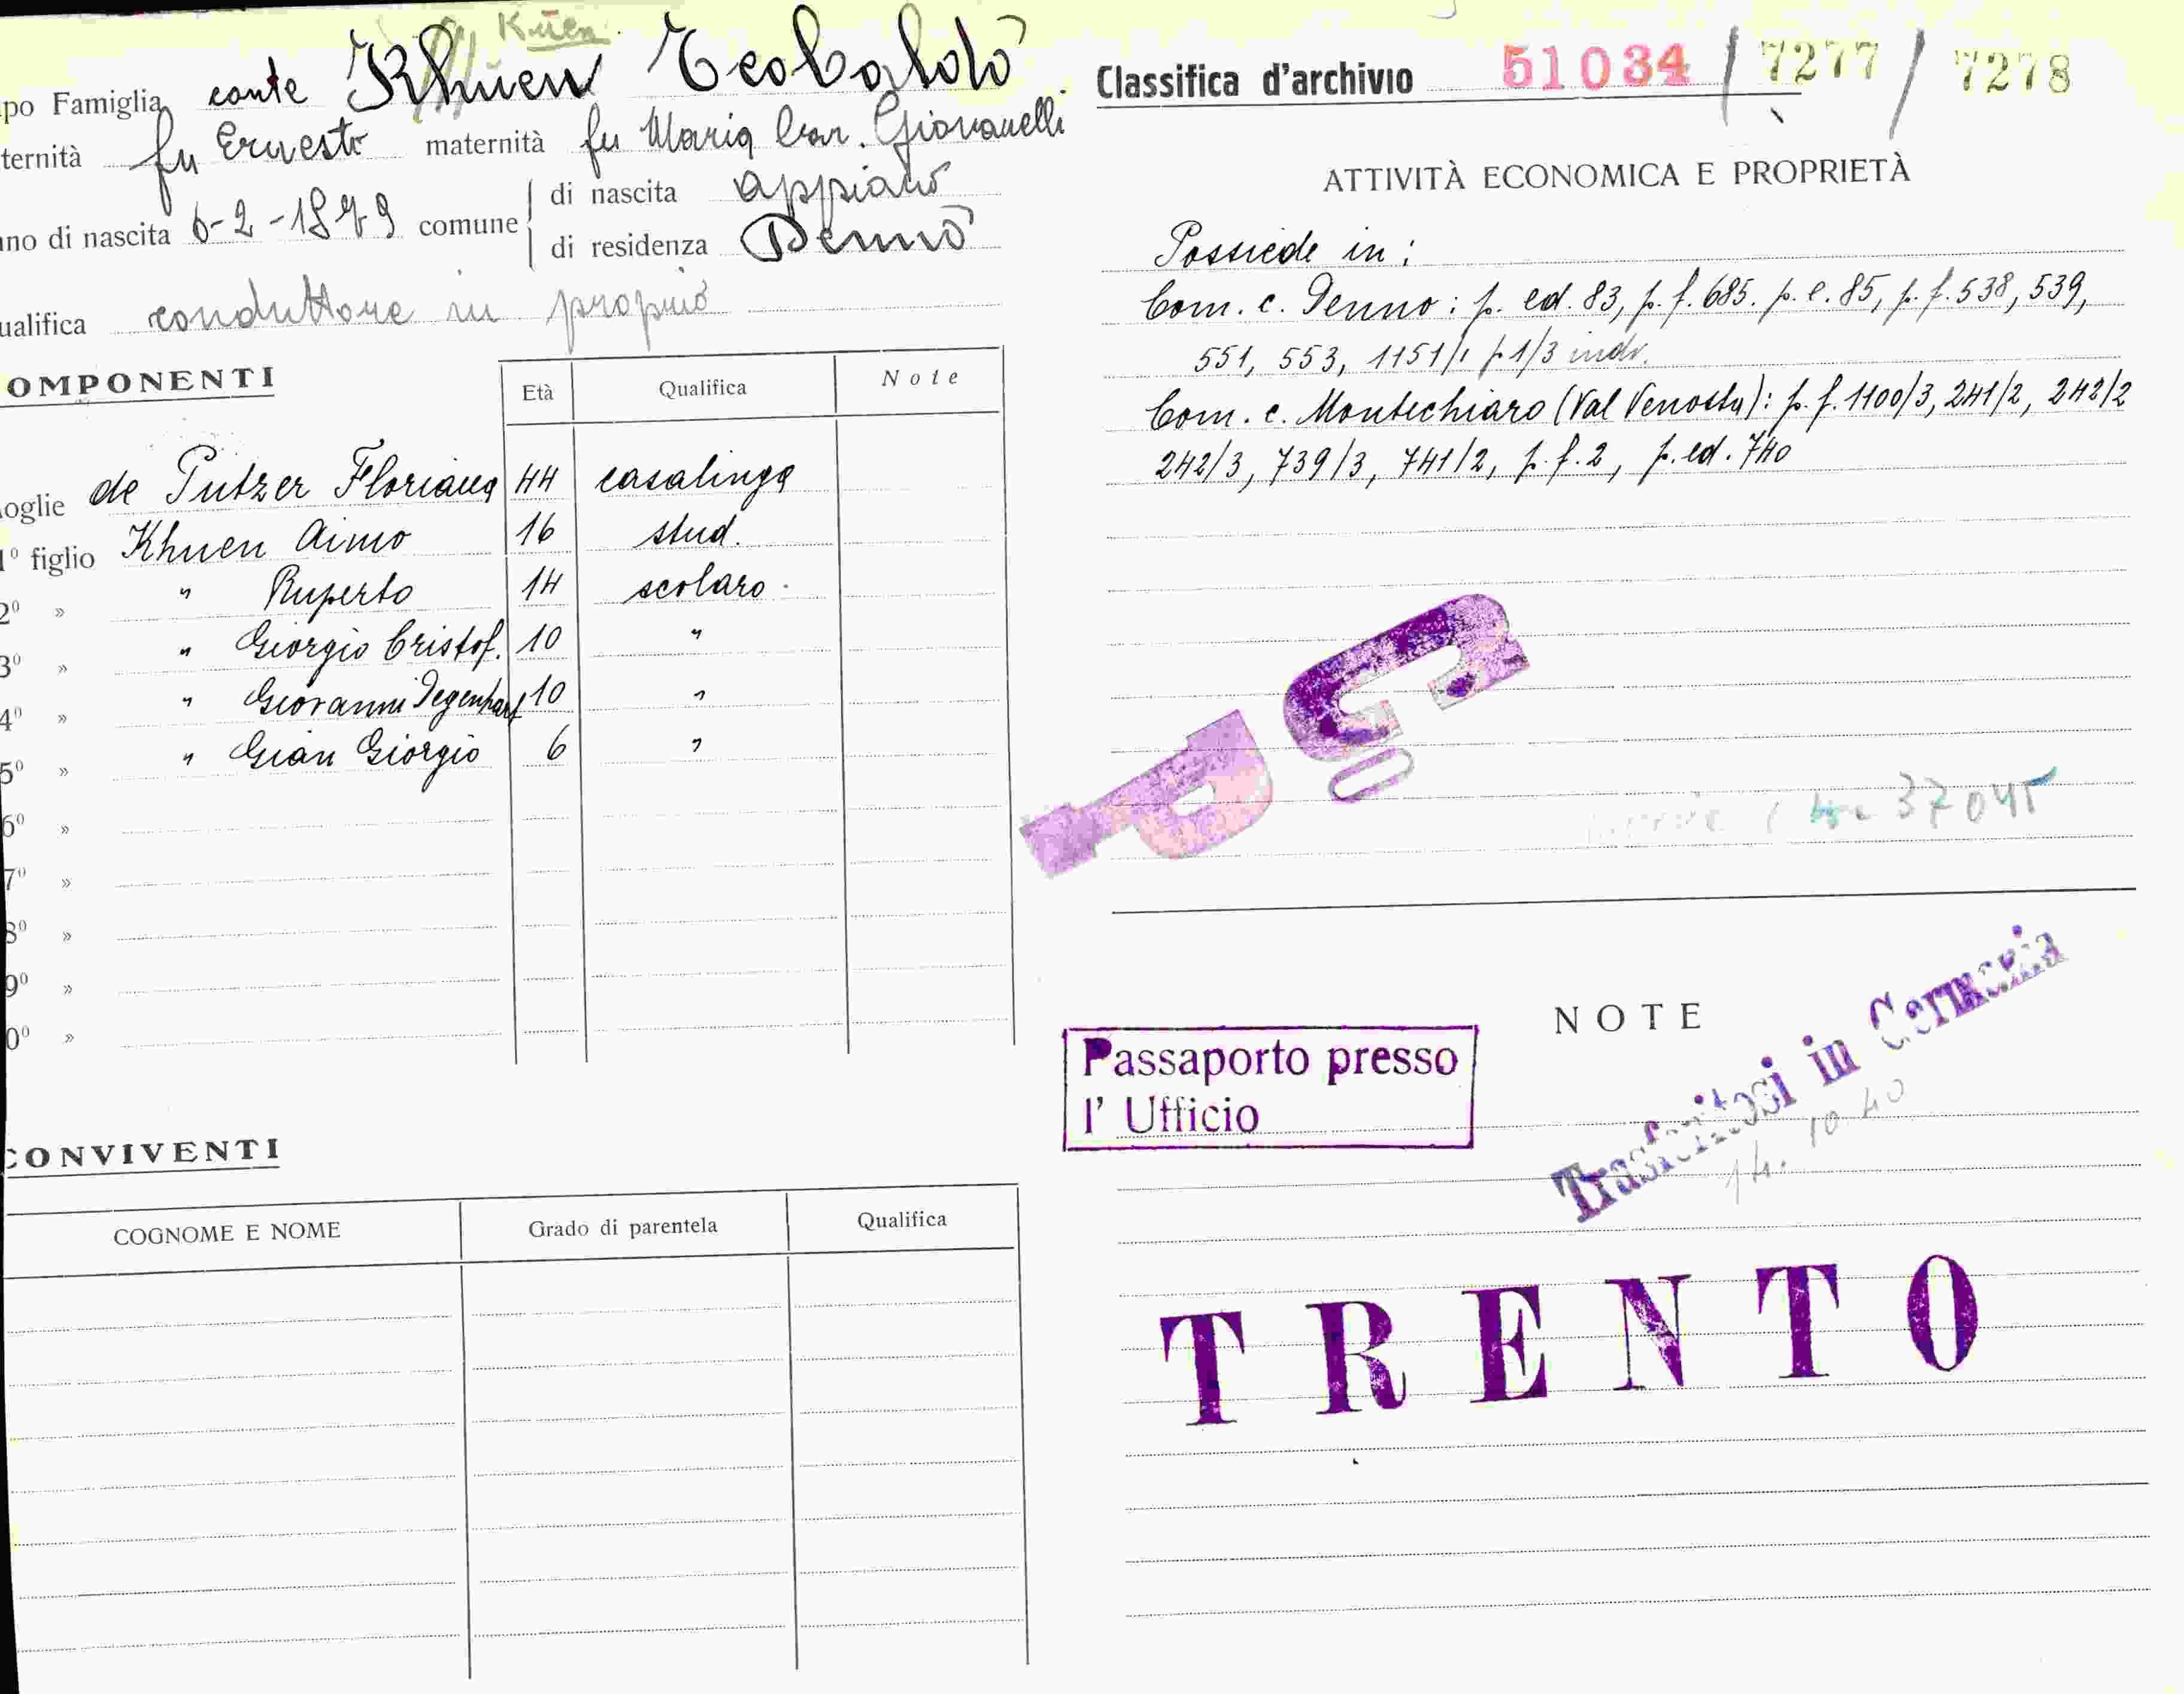 Küen
po Famiglia conte Khuen Teobaldo
ternità fu Ernesto maternità fu Maria Con. Giovanelli
no di nascita 6-2-1879 comune di nascita Appiano
di residenza Denno
ualifica conduttore in proprio
OMPONENTI
Età Qualifica Note
oglie de Putzer Floriana 44 casalinga
1º figlio Khuen Aimo 16 stud.
2º » " Ruperto 14 scolaro
3º » " Giorgio Cristof. 10 "
4º » " Giovanni Degenhart 10 "
5º » " Gian Giorgio 6 "
6º »
7º »
8º »
9º »
0º »
CONVIVENTI
COGNOME E NOME Grado di parentela Qualifica
Classifica d'archivio 51034 / 7277 / 7278
ATTIVITÀ ECONOMICA E PROPRIETÀ
Possiede in:
Com. c. Denno: p. ed. 83, p. f. 685. p. e. 85, p. f. 538, 539,
551, 553, 1151/1 p 1/3 indiv.
Com. c. Montechiaro (Val Venosta): p. f. 1100/3, 241/2, 242/2
242/3, 739/3, 741/2, p. f. 2, p. ed. 740
37045
NOTE
Passaporto presso
l' Ufficio
Trasferitosi in Germania
14. 10 40
TRENTO